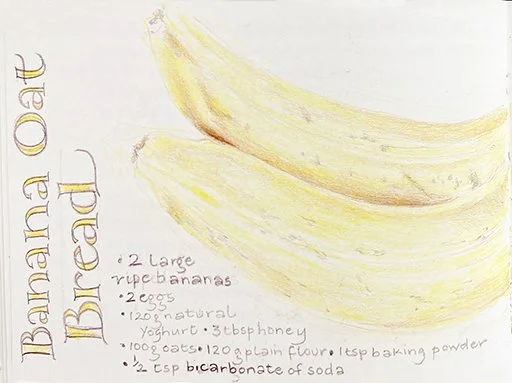 Banana Oat
Bread
• 2 large
ripe bananas
• 2 eggs
• 120g natural
Yoghurt • 3tbsp honey
• 100g oats • 120g plain flour • 1tsp baking powder
• 1/2 tsp bicarbonate of soda